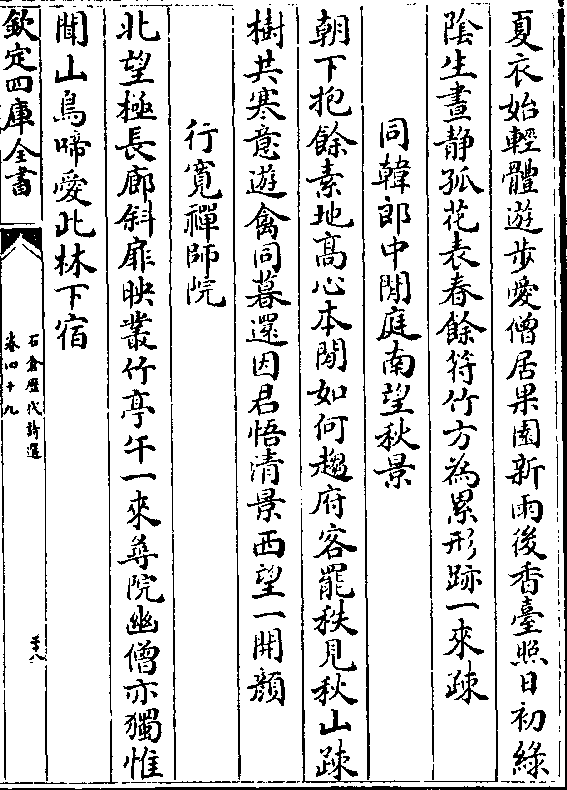 夏衣始輕體遊步愛僧居果園新雨後香臺照日初綠
陰生晝静孤花表春餘符竹方為累形跡一來疎
同韓郎中閒庭南望秋景
朝下抱餘素地髙心本閒如何趨府客罷秩見秋山疎
樹共寒意遊禽同暮還因君悟清景西望一開顔
行寛禪師院
北望極長廊斜扉映叢竹亭午一來尋院幽僧亦獨惟
聞山鳥啼愛此林下宿
欽定四庫全書
石倉歴代詩選
卷四十九